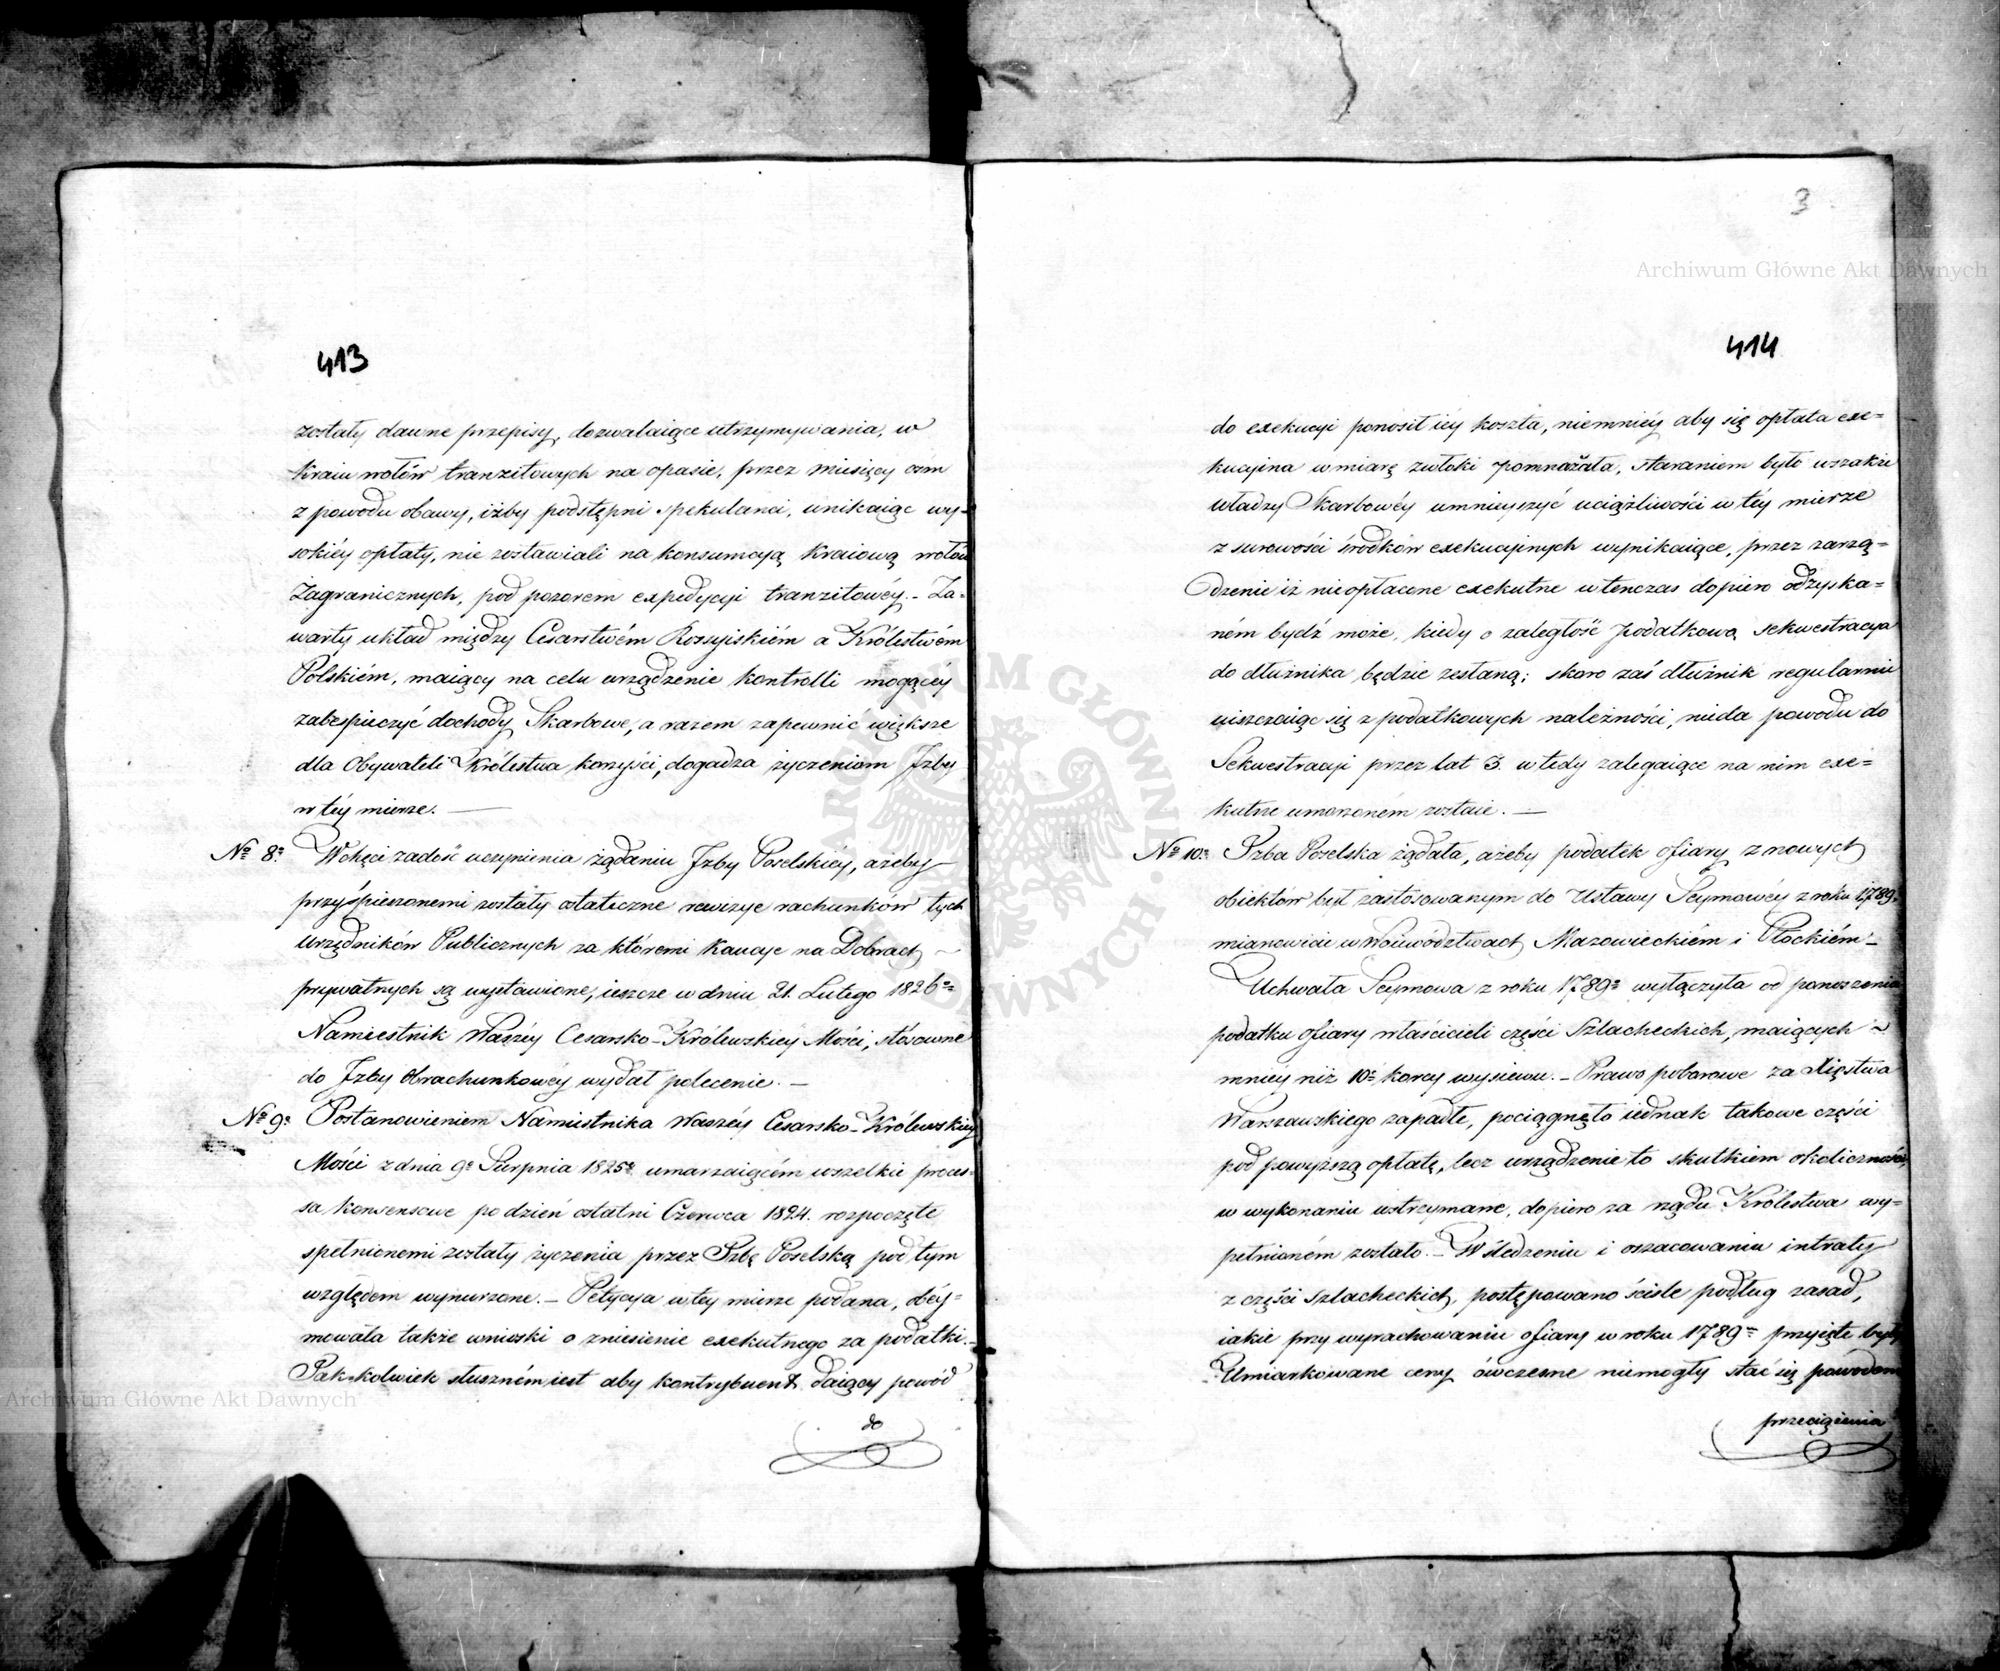 413
zostały dawne przepisy, dozwalaiące utrzymywania, w
Kraiu wołów tranzitowych na opasie, przez miesięcy ośm
z powodu obawy, iżby podstępni spekulanci, unikaiąc wy-
sokiéy opłaty, nie zostawiali na konsumcyą Kraiową wołów
Zagranicznych, pod pozorem expedycyi tranzitowéy. - Za-
warty układ między Cesarstwém Rossyiskiém a Królestwém
Polskiém, maiący na celu urządzenie kontrolli mogącéy
zabespieczyć dochody Skarbowe, a razem zapewnić większe
dla Obywateli Królestwa korzyści, dogadza życzeniom Jzby
w téy mierze. —
No 8o W chęci zadość uczynienia żądaniu Jzby Poselskiéy, ażeby
przyśpieszonemi zostały ostateczne rewizye rachunków tych
Urzędników Publicznych za któremi Kaucye na Dobrach ~
prywatnych są wystawione, ieszcze w dniu 21. Lutego 1826o
Namiestnik Waszéy Cesarsko-Królewskiey Mości, stósowne
do Jzby Obrachunkowéy wydał polecenie. —
No 9o Postanowieniem Namiestnika Waszéy Cesarsko-Królewskiey
Mości z dnia 9o Sierpnia 1825o umarzaiącém wszelkie proces-
sa konsensowe po dzień ostatni Czerwca 1824. rozpoczęte
spełnionemi zostały życzenia przez Jzbę Poselską pod tym
względem wynurzone. — Petycya w téy mierze podana, obéy-
mowała także wnioski o zniesienie exekutnego za podatki. -
Jakkolwiek słuszném iest aby kontrybuent daiący powód
do
3
414
do exekucyi ponosił iéy koszta, niemniéy aby się opłata exe=
kucyina w miarę zwłoki pomnażała, staraniem było wszakże
władzy Skarbowéy umnieyszyć uciążliwości w téy mierze
z surowości środków exekucyinych wynikaiące, przez zarzą=
dzenie iż nieopłacone exekutne wtenczas dopiero odzyska=
ném bydź może, kiedy o zaległość podatkową sekwestracya
do dłużnika będzie zesłaną; skoro zaś dłużnik regularnie
uiszczaiąc się z podatkowych należności, nieda powodu do
Sekwestracyi przez lat 3. wtedy zalegaiące na nim exe=
kutne umorzoném zostaie. —
No 10o Jzba Poselska żądała, ażeby podatek ofiary z nowych
obiektów był zastosowanym do Ustawy Seymowéy z roku 1789o
mianowicie w Woiewództwach Mazowieckiém i Płockiém -
Uchwała Seymowa z roku 1789o wyłączyła od ponoszenia
podatku ofiary właścicieli części Szlacheckich, maiących ~
mniéy niż 10o korcy wysiewu. - Prawo poborowe za Xięstwa
Warszawskiego zapadłe, pociągnęło iednak takowe części
pod powyższą opłatę, lecz urządzenie to skutkiem okoliczności
w wykonaniu wstrzymane, dopiero za rządu Królestwa wy-
pełnioném zostało. - W śledzeniu i oszacowaniu intraty
z części szlacheckich, postępowano ściśle podług zasad,
iakie przy wyrachowaniu ofiary w roku 1789o przyięte były
Umiarkowane ceny ówczesne niemogły stać się powodem
przeciążenia